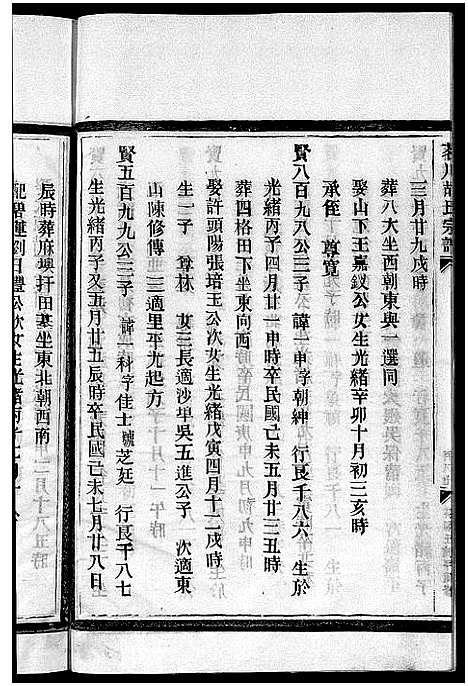 三月廿九戌時
葬八大坐西朝東與一選同
娶山下王嘉釵公女生光緒辛卯十月初三亥時
承侄 尊寬
賢八百九八公三子 諱一申字朝紳 行良千八六 生於
光緒丙子四月廿一申時卒民國己未五月廿三丑時
葬四格田下坐東向西
娶許頭陽張培玉公次女生光緒戊寅四月十二戌時
生一子 尊林 女三長適沙埠吳五進公子 次適東
山陳修傳 三適里平九起方
賢五百九九公三子 諱一科字佳士號芝庭 行良千八七
生光緒丙子又五月廿五辰時卒民國己未七月廿八日
辰時葬麻墺扦田墓坐東北朝西南